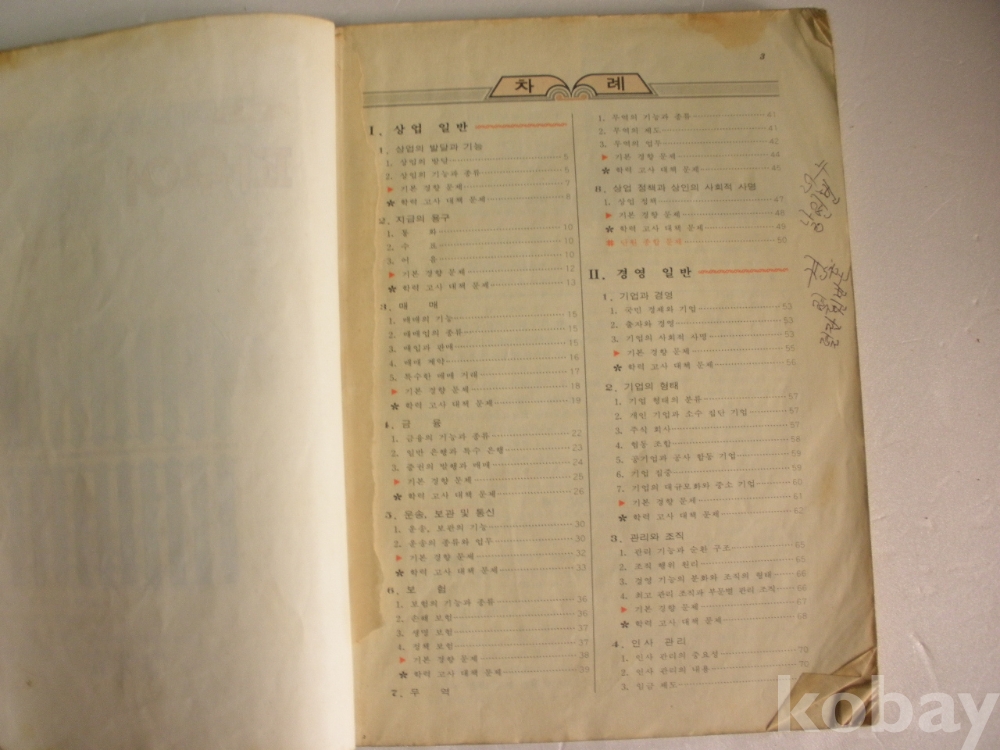 3
차 례
Ⅰ. 상업 일반
1. 상업의 발달과 기능
1. 상업의 발달 5
2. 상업의 기능과 종류 6
▶ 기본 경향 문제 7
✽ 학력 고사 대책 문제 8
2. 자금의 융구
1. 통 화 10
2. 수 표 10
3. 어 음 10
▶ 기본 경향 문제 12
✽ 학력 고사 대책 문제 13
3. 매 매
1. 매매의 기능 15
2. 매매업의 종류 15
3. 매입과 판매 15
4. 매매 계약 16
5. 특수한 매매 거래 17
▶ 기본 경향 문제 18
✽ 학력 고사 대책 문제 19
4. 금 융
1. 금융의 기능과 종류 22
2. 일반 은행과 특수 은행 23
3. 증권의 발행과 매매 24
▶ 기본 경향 문제 25
✽ 학력 고사 대책 문제 26
5. 운송, 보관 및 통신
1. 운송, 보관의 기능 30
2. 운송의 종류와 업무 30
▶ 기본 경향 문제 32
✽ 학력 고사 대책 문제 33
6. 보 험
1. 보험의 기능과 종류 36
2. 손해 보험 36
3. 생명 보험 37
4. 정책 보험 37
▶ 기본 경향 문제 38
✽ 학력 고사 대책 문제 39
7. 무 역
1. 무역의 기능과 종류 41
2. 무역의 제도 41
3. 무역의 업무 42
▶ 기본 경향 문제 44
✽ 학력 고사 대책 문제 45
8. 상업 정책과 상인의 사회적 사명
1. 상업 정책 47
▶ 기본 경향 문제 48
✽ 학력 고사 대책 문제 49
■ 단원 종합 문제 50
Ⅱ. 경영 일반
1. 기업과 경영
1. 국민 경제와 기업 53
2. 출자와 경영 53
3. 기업의 사회적 사명 53
▶ 기본 경향 문제 55
✽ 학력 고사 대책 문제 56
2. 기업의 형태
1. 기업 형태의 분류 57
2. 개인 기업과 소수 집단 기업 57
3. 주식 회사 57
4. 협동 조합 58
5. 공기업과 공사 합동 기업 59
6. 기업 집중 59
7. 기업의 대규모화와 중소 기업 60
▶ 기본 경향 문제 61
✽ 학력 고사 대책 문제 62
3. 관리와 조직
1. 관리 기능과 순환 구조 65
2. 조직 행위 원리 65
3. 경영 기능의 분화와 조직의 형태 66
4. 최고 관리 조직과 부문별 관리 조직 66
▶ 기본 경향 문제 67
✽ 학력 고사 대책 문제 68
4. 인사 관리
1. 인사 관리의 중요성 70
2. 인사 관리의 내용 70
3. 임금 제도
kobay